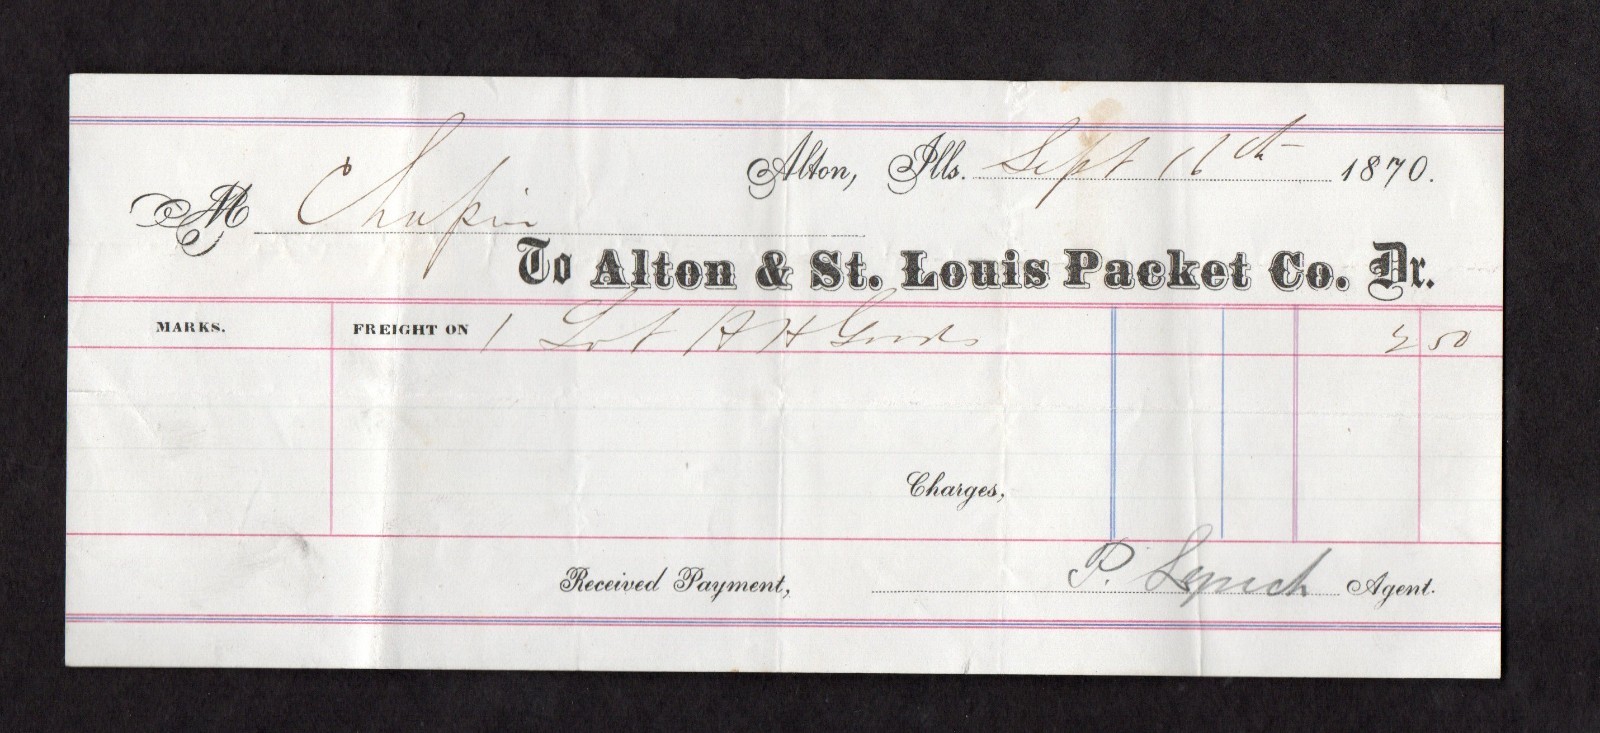 Alton, Ills. Sept 16th 1870.
M Chapin
To Alton & St. Louis Packet Co. Dr.
MARKS. FREIGHT ON 1 Lot H H Goods 2 50
Charges,
Received Payment, P. Lynch Agent.